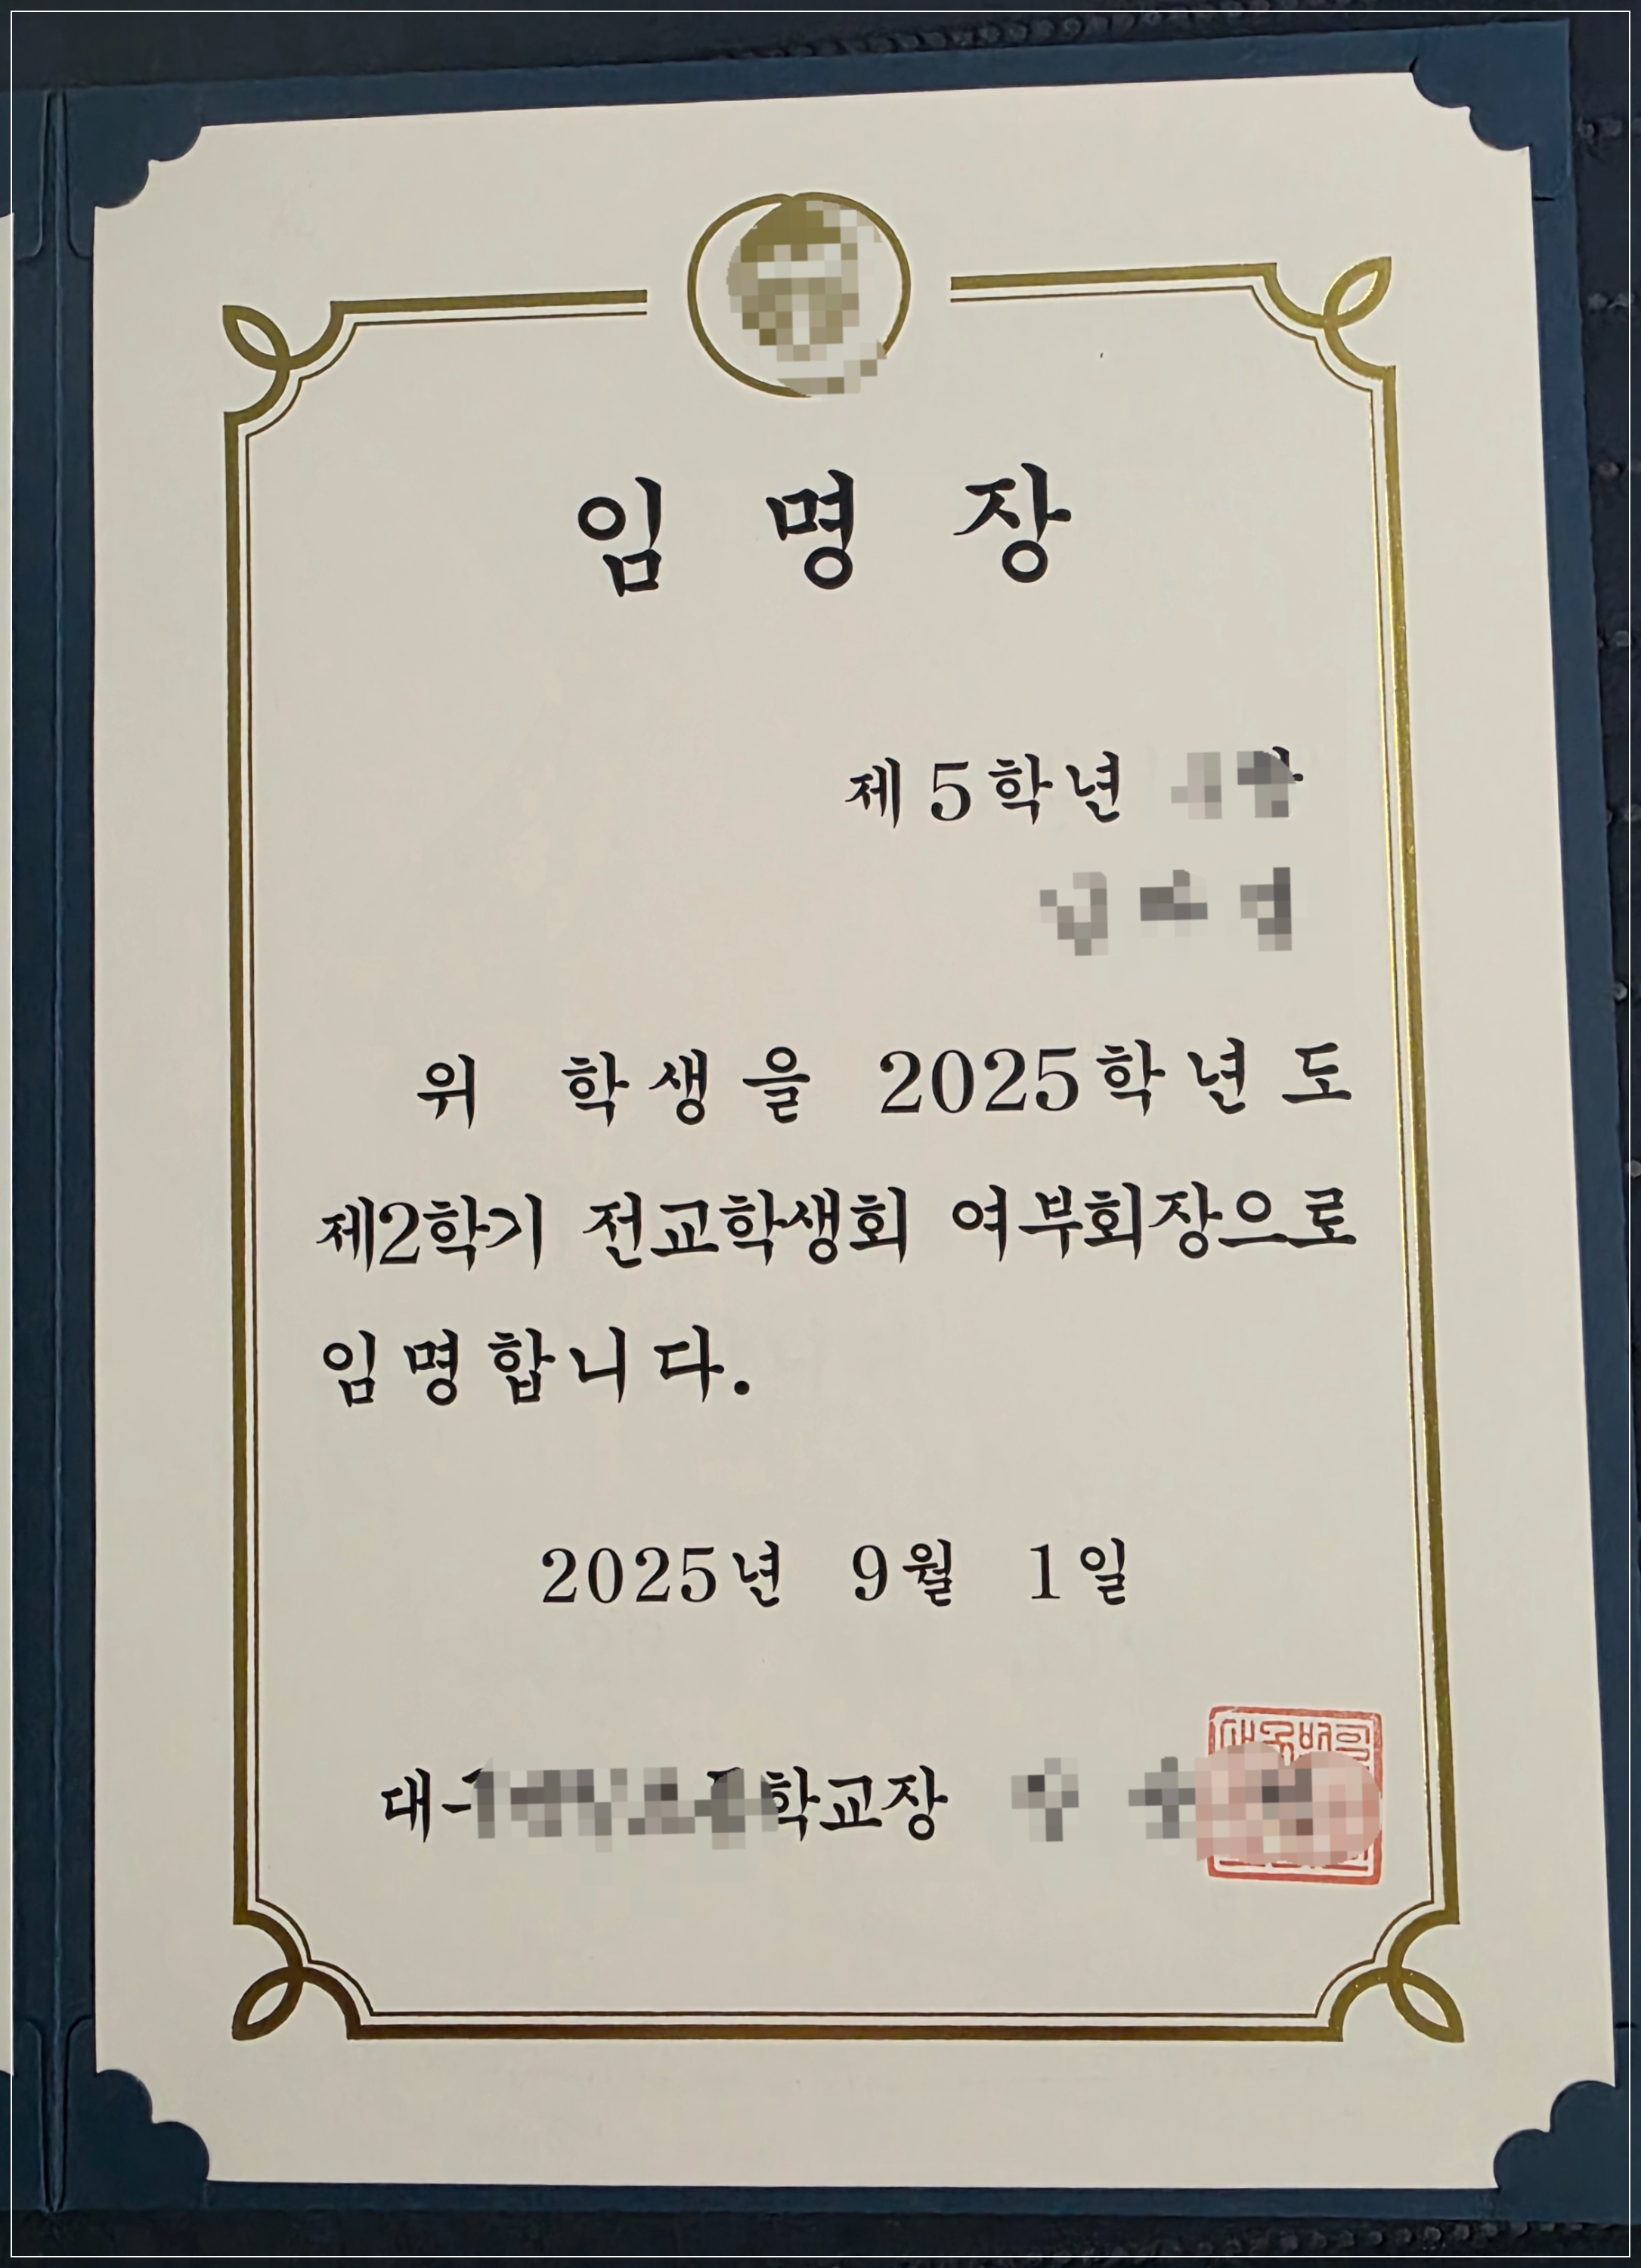 임 명 장
제 5 학 년
위 학 생 을 2025 학 년 도
제2학기 전교학생회 여부회장으로
임 명 합 니 다.
2025년 9월 1일
학교장